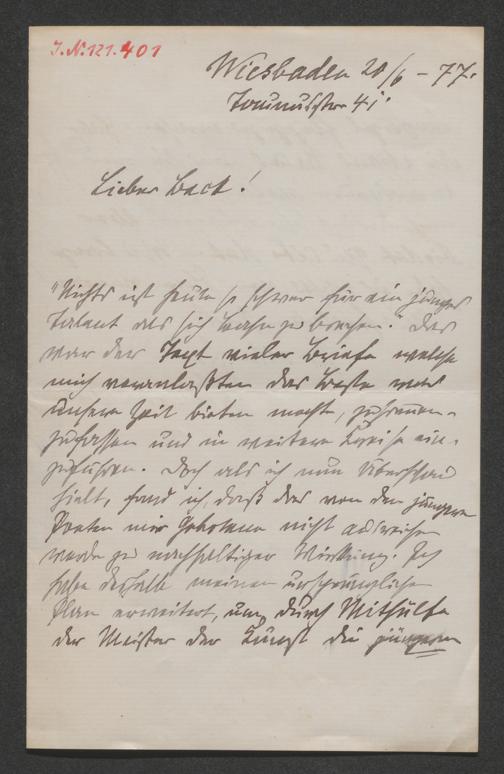 J.N. 121.401
Wiesbaden 20/6 – 77.
Taunusstr. 41.
Lieber Beck!
"Nichts ist heute so schwer für ein junges
Talent als sich Bahn zu brechen." Das
war der Text vieler Briefe welche
mich veranlaßten das Beste was
unsere Zeit bieten mochte, zusammen-
zufassen und in weitere Kreise ein-
zuführen. Doch als ich nun Überschau
hielt, fand ich, daß das von den jüngern
Poeten mir Gebotene nicht ausreichen
werde zu nachhaltiger Wirkung. Ich
habe deshalb meinen ursprünglichen
Plan erweitert, um durch Mithülfe
der Meister der Kunst die jüngern